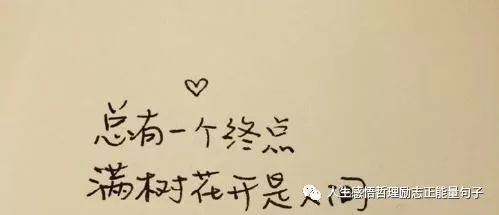 总有一个终点
满树花开是人间
人生感悟哲理励志正能量句子